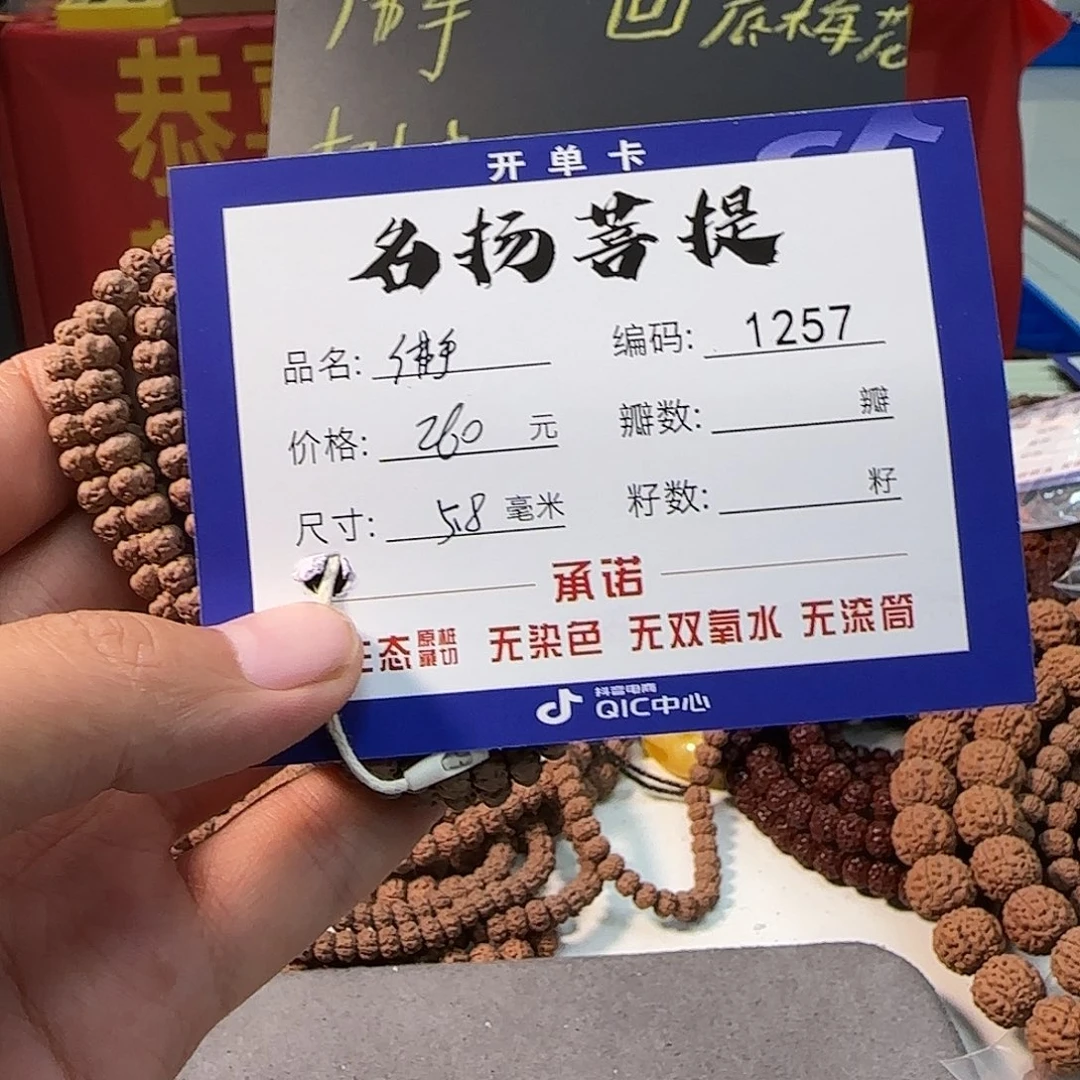 恭
回 底梅花
开单卡
名扬菩提
品名: 编码: 1257
价格: 260 元 瓣数: 瓣
尺寸: 5.8 毫米 籽数: 籽
承诺
生态 原桩藏切 无染色 无双氧水 无滚筒
抖音电商
QIC中心